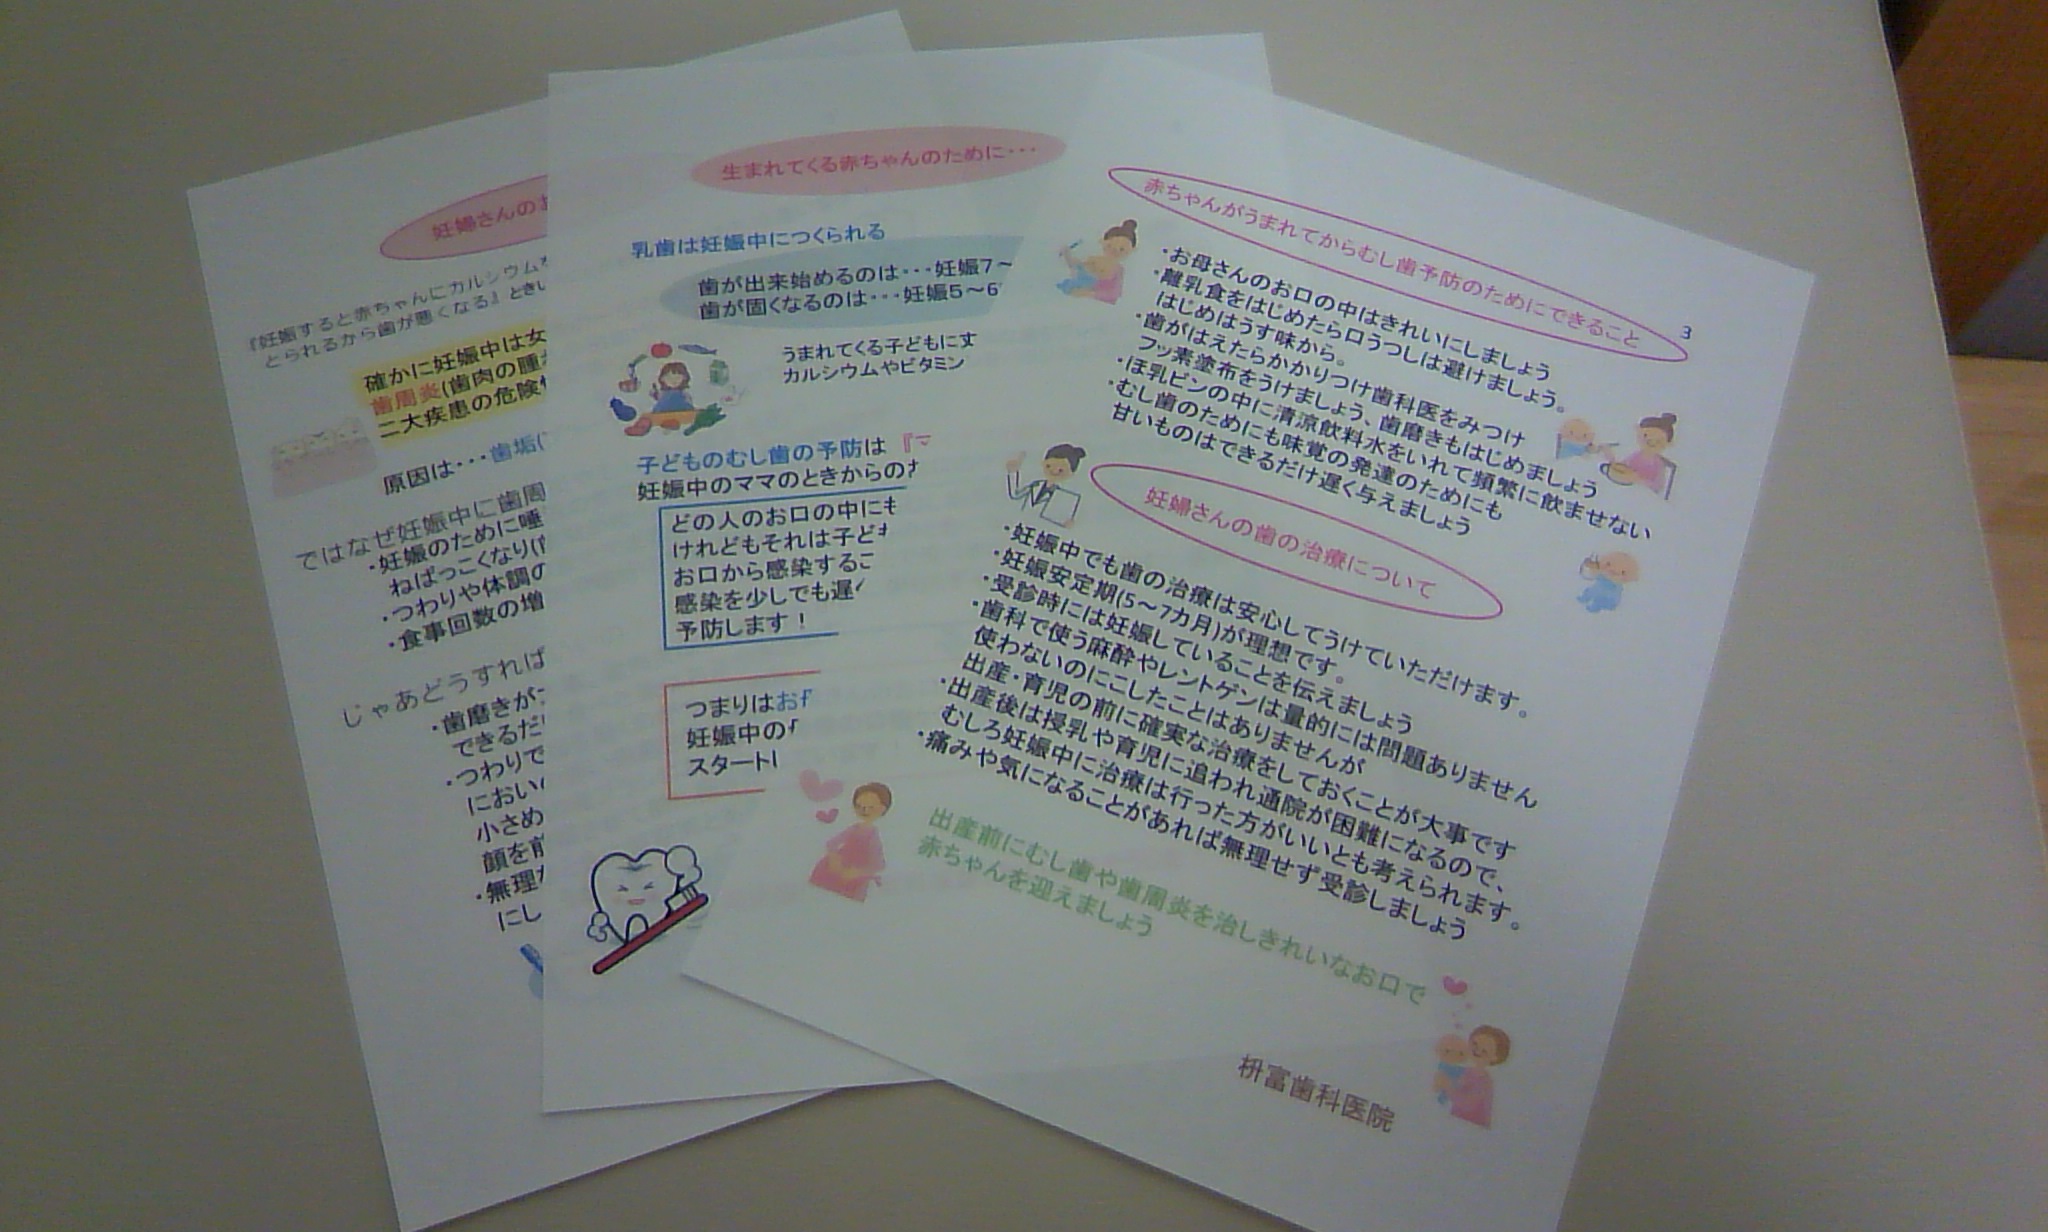 妊婦さんのお
『妊娠すると赤ちゃんにカルシウムを
とられるから歯が悪くなる』ときい
確かに妊娠中は女
歯周炎(歯肉の腫
二大疾患の危険
原因は･･･歯垢(
ではなぜ妊娠中に歯周
・妊娠のために唾
ねばっこくなり(
・つわりや体調の
・食事回数の増
じゃあどうすれば
・歯磨きが
できるだ
・つわりで
におい
小さめ
顔を前
・無理
にし
生まれてくる赤ちゃんのために･･･
乳歯は妊娠中につくられる
歯が出来始めるのは･･･妊娠7～
歯が固くなるのは･･･妊娠5～6
うまれてくる子どもに丈
カルシウムやビタミン
子どものむし歯の予防は『マ
妊娠中のママのときからの
どの人のお口の中にも
けれどもそれは子ども
お口から感染するこ
感染を少しでも遅く
予防します！
つまりはお
妊娠中の
スタートし
3
赤ちゃんがうまれてからむし歯予防のためにできること
・お母さんのお口の中はきれいにしましょう
・離乳食をはじめたら口うつしは避けましょう。
はじめはうす味から。
・歯がはえたらかかりつけ歯科医をみつけ
フッ素塗布をうけましょう、歯磨きもはじめましょう
・ほ乳ビンの中に清涼飲料水をいれて頻繁に飲ませない
・むし歯のためにも味覚の発達のためにも
甘いものはできるだけ遅く与えましょう
妊婦さんの歯の治療について
・妊娠中でも歯の治療は安心してうけていただけます。
・妊娠安定期(5～7カ月)が理想です。
・受診時には妊娠していることを伝えましょう
・歯科で使う麻酔やレントゲンは量的には問題ありません
使わないのにこしたことはありませんが
出産・育児の前に確実な治療をしておくことが大事です
・出産後は授乳や育児に追われ通院が困難になるので、
むしろ妊娠中に治療は行った方がいいとも考えられます。
・痛みや気になることがあれば無理せず受診しましょう
出産前にむし歯や歯周炎を治しきれいなお口で
赤ちゃんを迎えましょう
枡富歯科医院